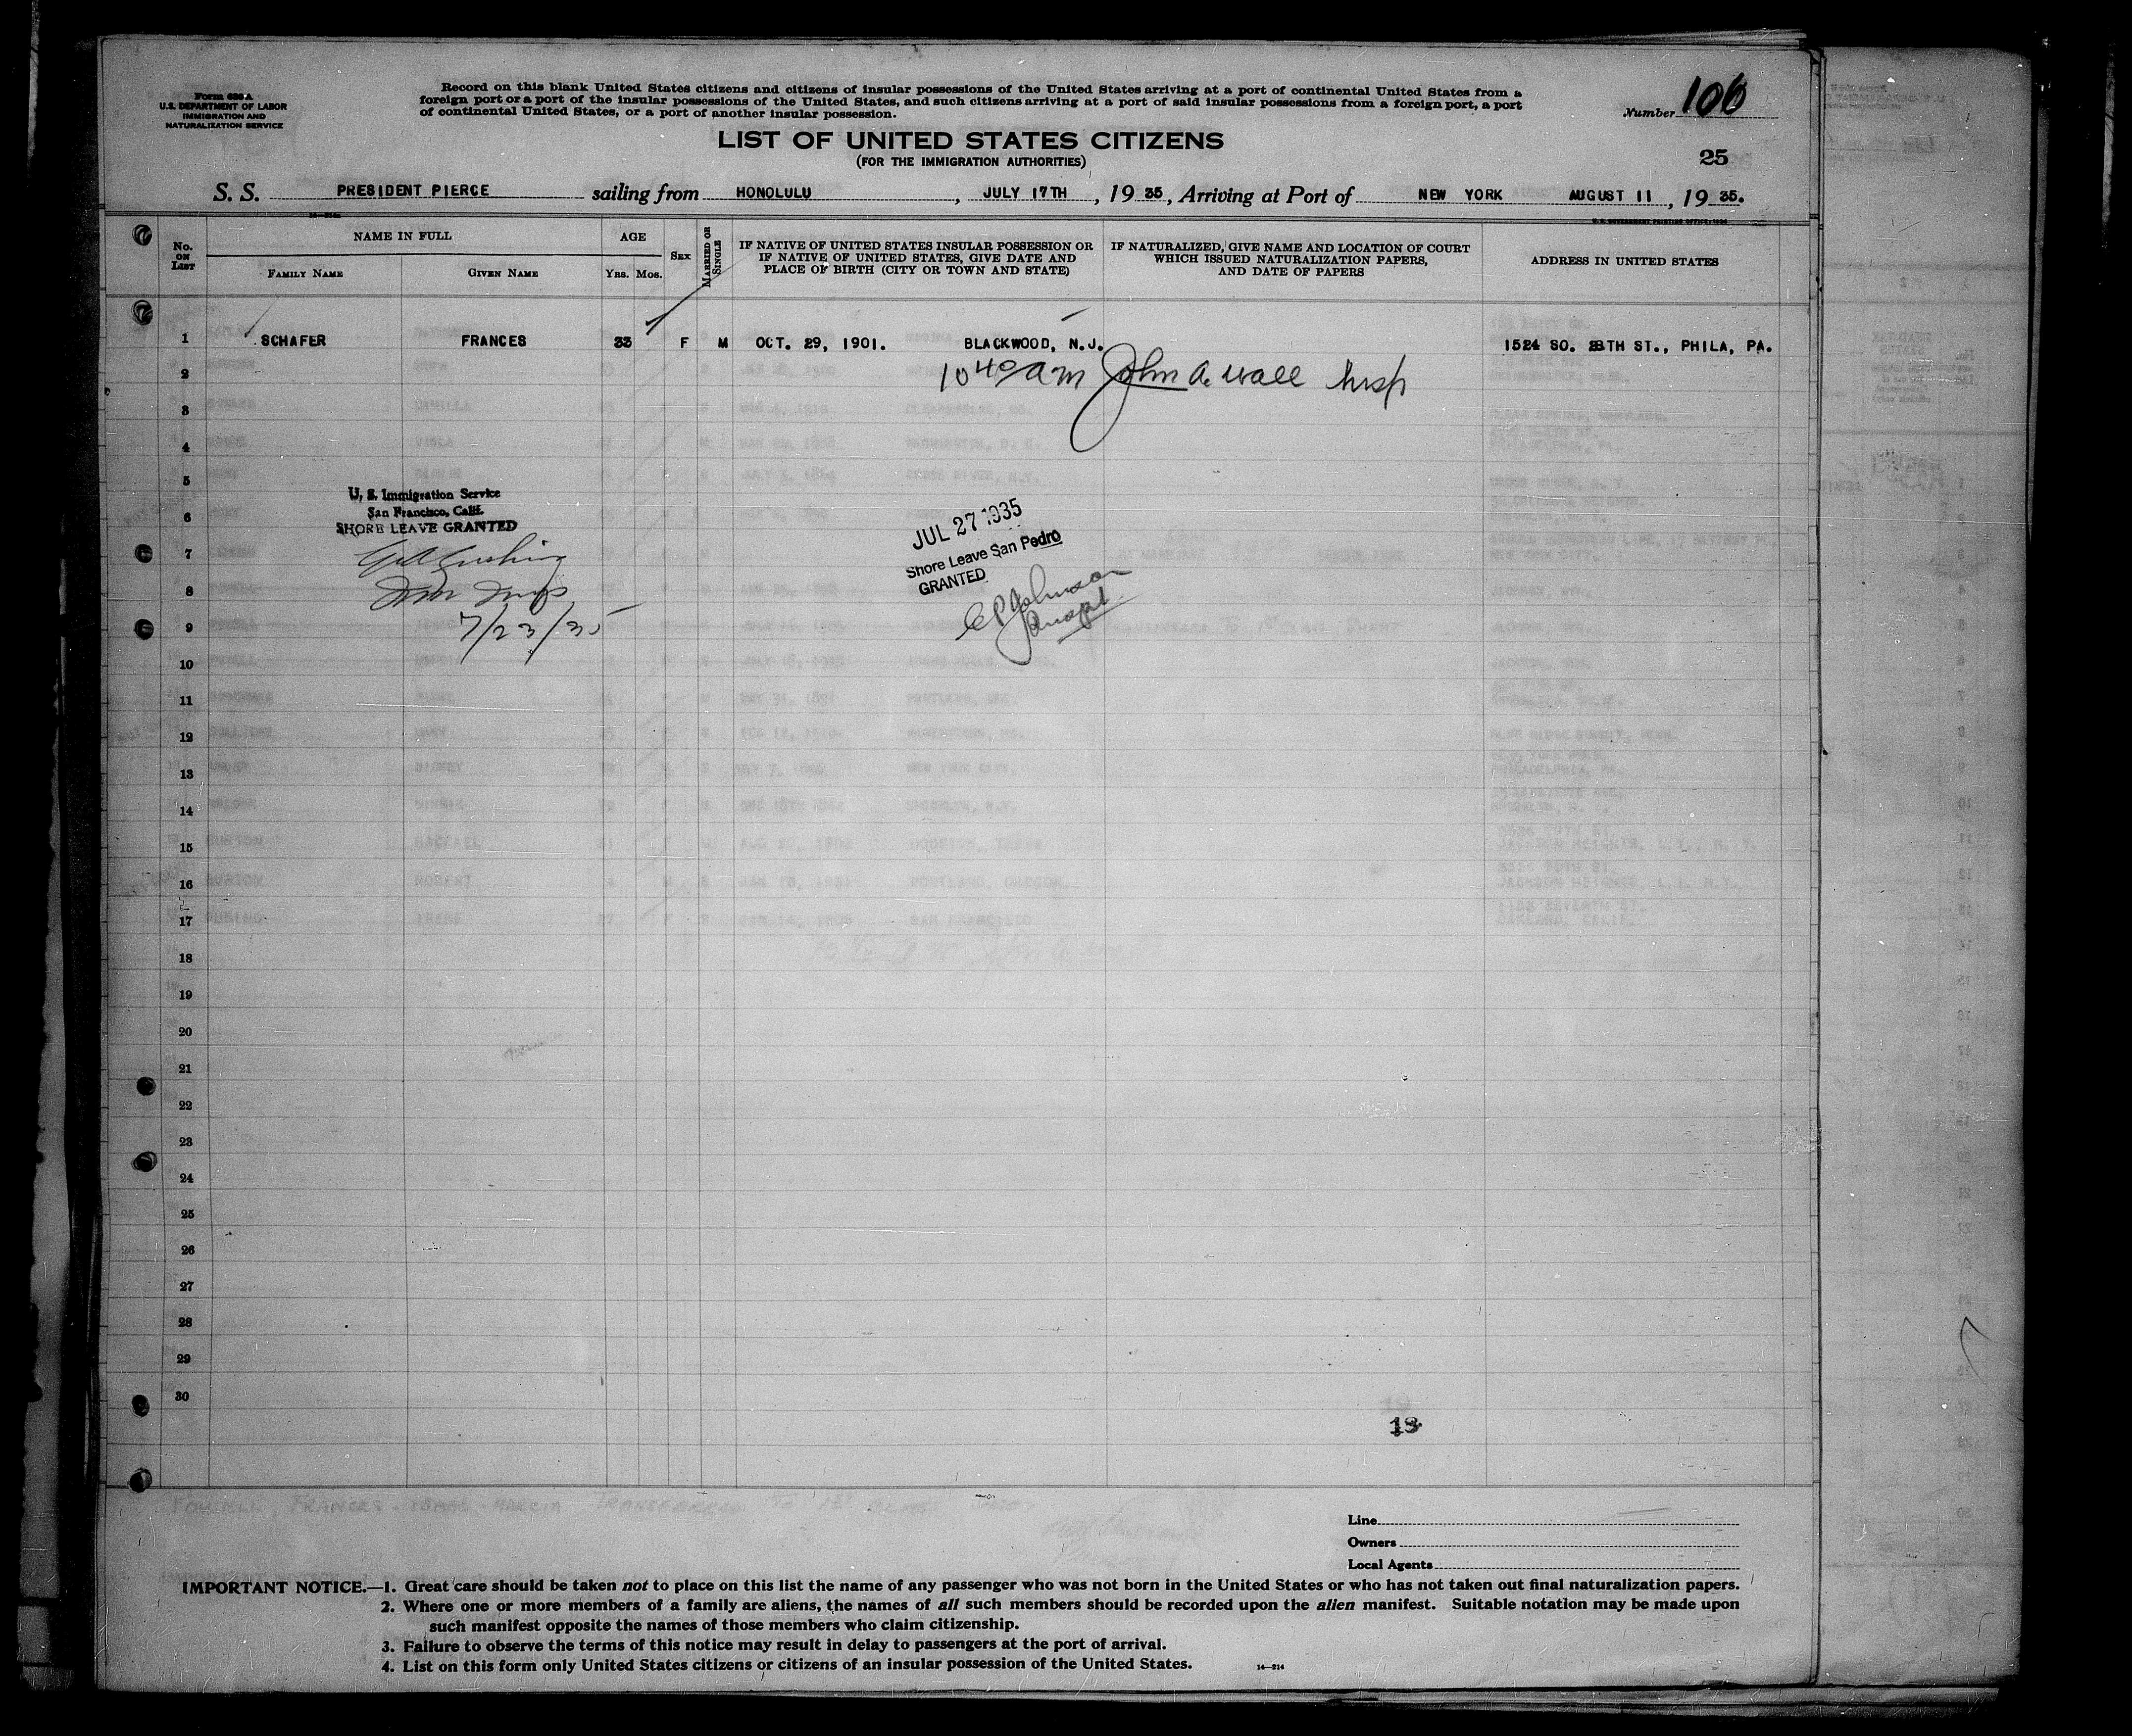 Form 686 A
U.S. DEPARTMENT OF LABOR
IMMIGRATION AND
NATURALIZATION SERVICE
Record on this blank United States citizens and citizens of insular possessions of the United States arriving at a port of continental United States from a
foreign port or a port of the insular possessions of the United States, and such citizens arriving at a port of said insular possessions from a foreign port, a port
of continental United States, or a port of another insular possession.
Number 106
LIST OF UNITED STATES CITIZENS
(FOR THE IMMIGRATION AUTHORITIES)
25
S. S. PRESIDENT PIERCE sailing from HONOLULU, JULY 17TH, 19 35, Arriving at Port of NEW YORK AUGUST 11, 19 35.
No. ON LIST
NAME IN FULL
FAMILY NAME GIVEN NAME
AGE
YRS. MOS.
SEX
MARRIED OR SINGLE
IF NATIVE OF UNITED STATES INSULAR POSSESSION OR
IF NATIVE OF UNITED STATES, GIVE DATE AND
PLACE OF BIRTH (CITY OR TOWN AND STATE)
IF NATURALIZED, GIVE NAME AND LOCATION OF COURT
WHICH ISSUED NATURALIZATION PAPERS,
AND DATE OF PAPERS
ADDRESS IN UNITED STATES
1 SCHAFER FRANCES 33 F M OCT. 29, 1901. BLACKWOOD, N.J. 1524 SO. 28TH ST., PHILA, PA.
2
10 40 am John A. Wall Insp
3
4
5
U. S. Immigration Service
San Francisco, Calif.
SHORE LEAVE GRANTED
6
JUL 27 1935
Shore Leave San Pedro
GRANTED
7
8
CP Johnson
Inspt.
9
7/23/35
10
11
12
13
14
15
16
17
18
19
20
21
22
23
24
25
26
27
28
29
30
Line
Owners
Local Agents
IMPORTANT NOTICE.—1. Great care should be taken not to place on this list the name of any passenger who was not born in the United States or who has not taken out final naturalization papers.
2. Where one or more members of a family are aliens, the names of all such members should be recorded upon the alien manifest. Suitable notation may be made upon
such manifest opposite the names of those members who claim citizenship.
3. Failure to observe the terms of this notice may result in delay to passengers at the port of arrival.
4. List on this form only United States citizens or citizens of an insular possession of the United States.
14—214